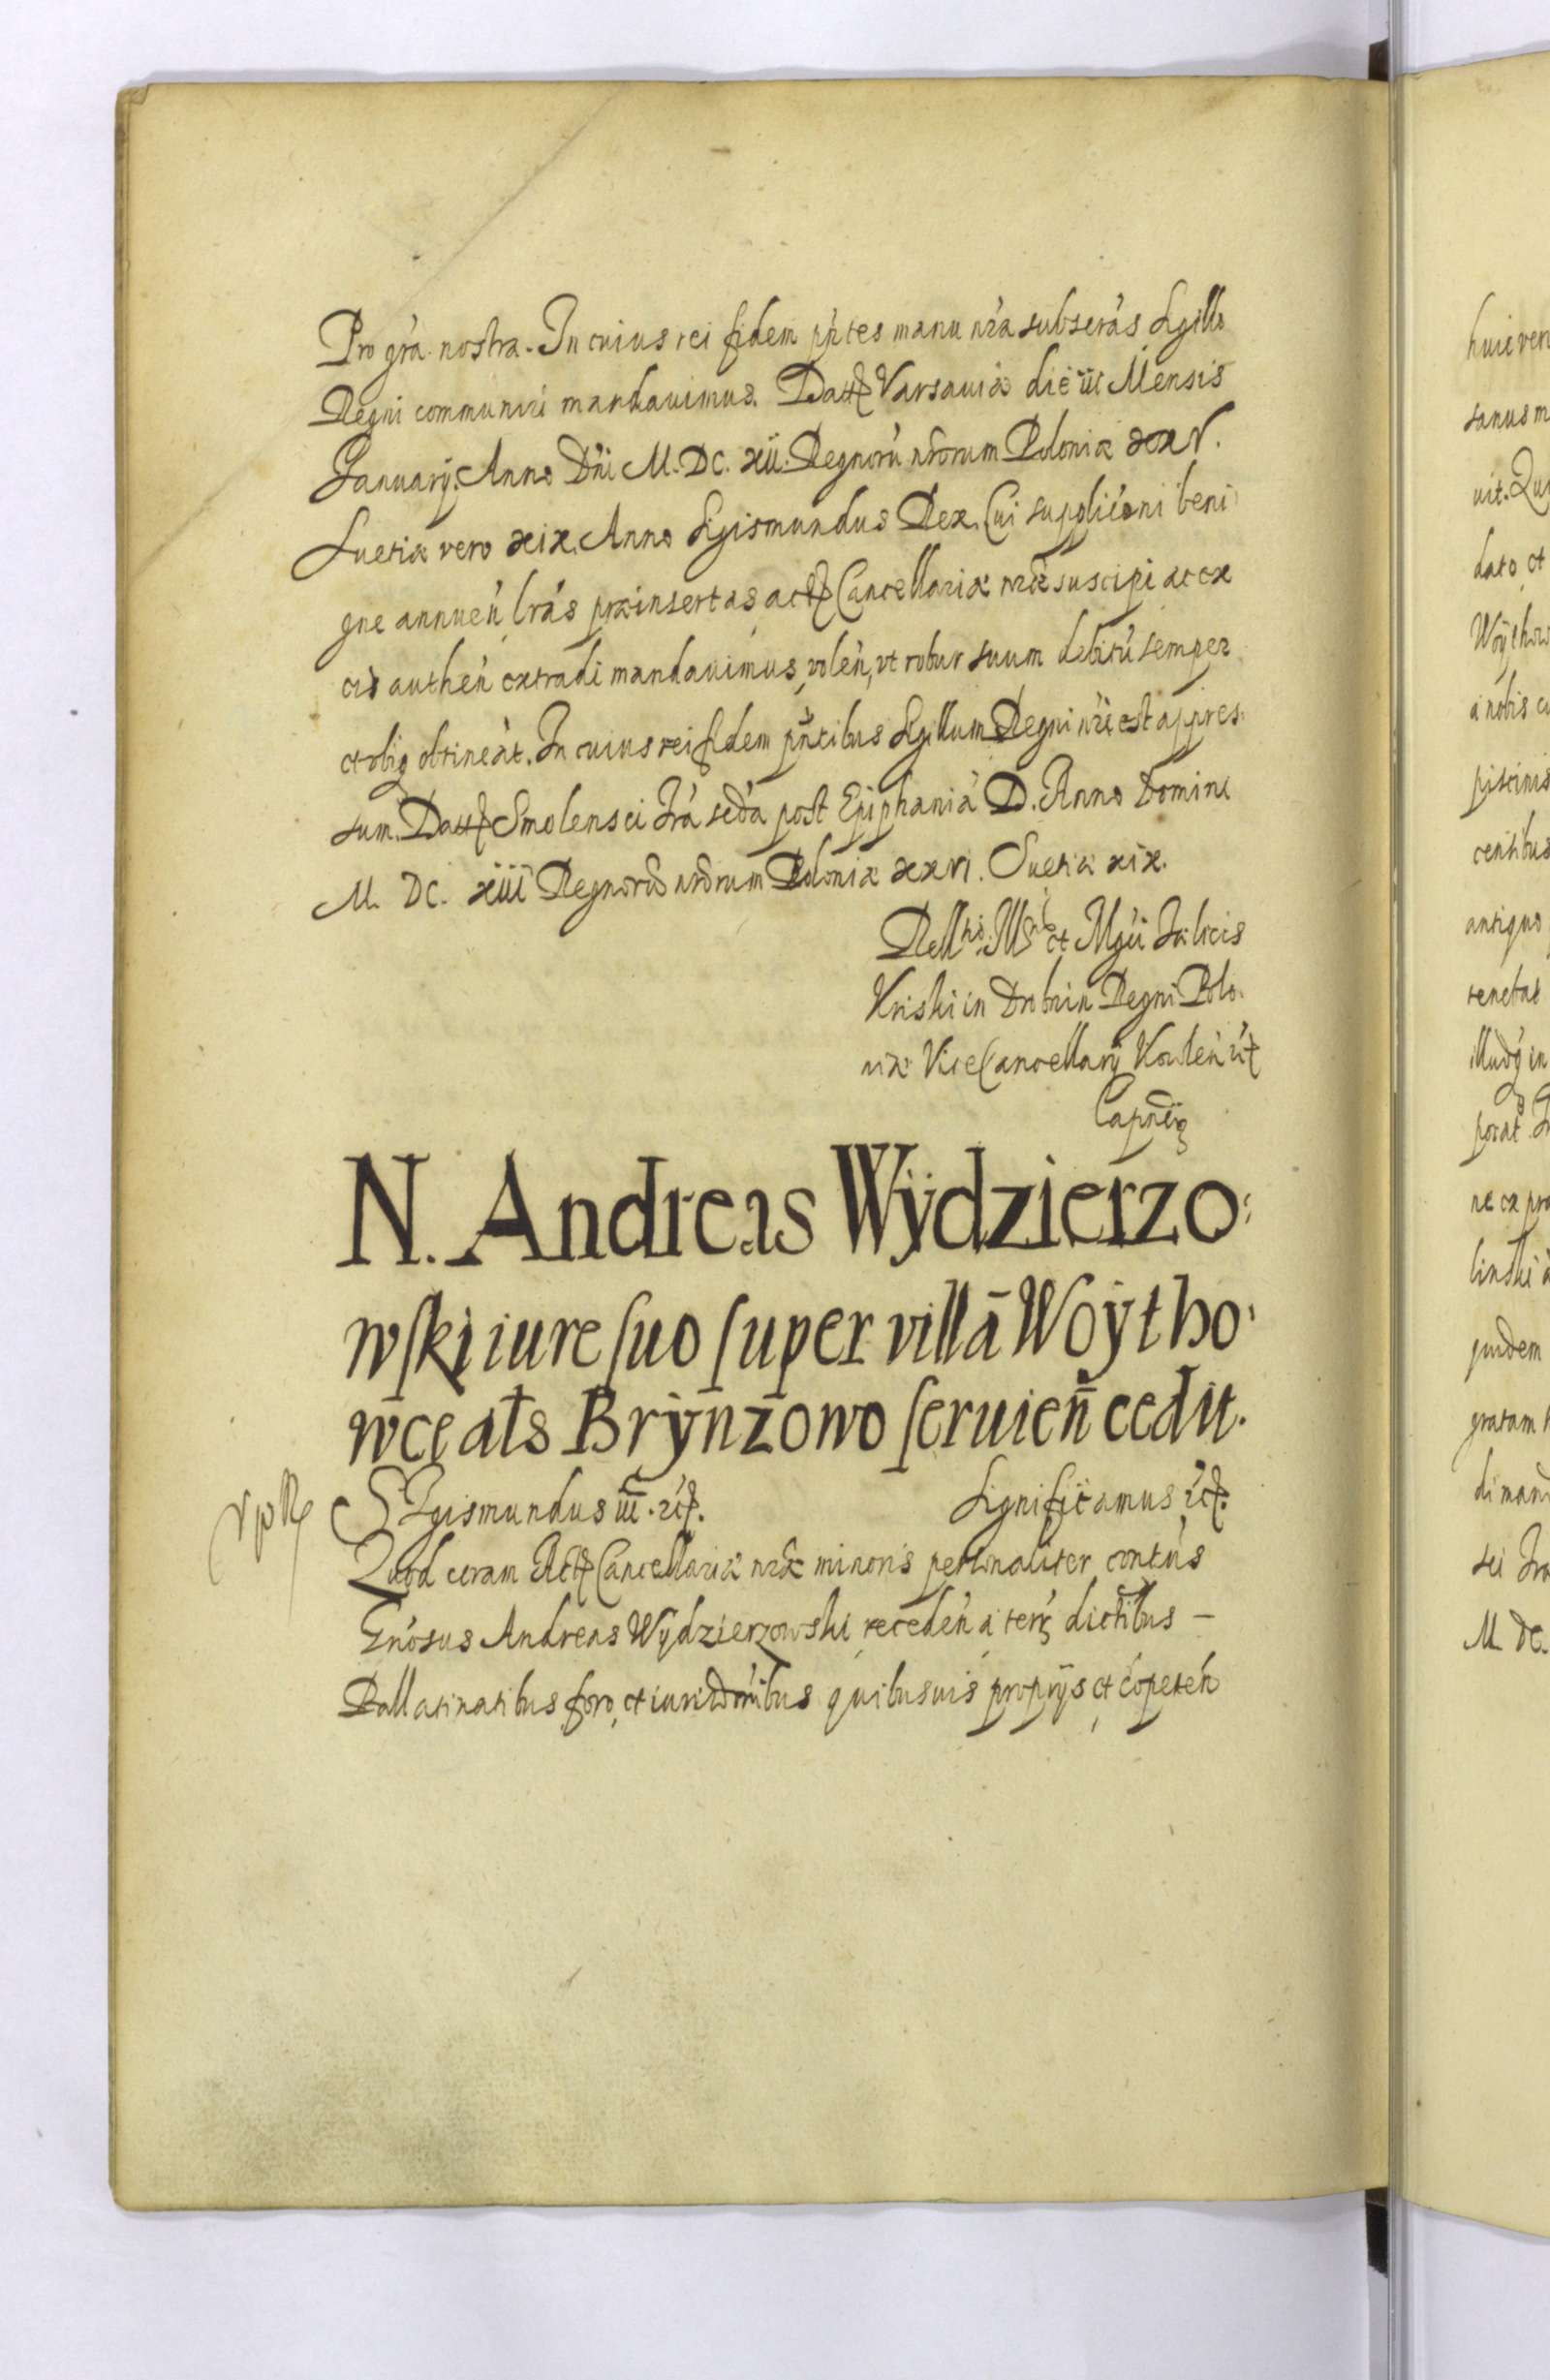 Pro gra nostra. In cuius rei fidem pntes manu nra subscras Sigillo
Regni communiri mandauimus. Datt Varsauiæ die iii Mensis
Januarij. Anno Dni M. DC. xii. Regnorũ nrorum Poloniæ xxv.
Suetiæ vero xix. Anno Sigismundus Rex. Cui supplicõni beni
gne annuen lras præinsertas actis Cancellariæ nræ suscipi ac ex
eis authen extradi mandauimus, volen, vt robur suum debitũ semper
et vbiq obtineat. In cuius rei fidem pntibus Sigillum Regni nri est appres:
sum. Datt Smolensci fra secda post Epiphania D. Anno Domini
M. DC. xiii Regnorũ nrorum Poloniæ xxvi. Suetiæ xix.
Rellatio Illris et Mgci Fælicis
Kriski in Drobnin Regni Polo:
niæ ViceCancellarij
Capnei
N. Andreas Wÿdzierzo:
wski iure suo super villã Woÿtho:
wce als Brÿnzowo seruien cedit.
Sigismundus iii. etc. Significamus etc.
Quod coram Actis Cancellariæ nræ minoris personaliter contus
Gnosus Andreas Wÿdzierzowski, receden a terris dictibus –
Pallatinatibus foro, et iurisdonibus quibusuis proprijs et copeten
huic ven
sanus m
uit. Qui
dato, et
Woÿthow
a nobis cu
piscinis
centibus
antiquo
tenebat
illudq in
porat
ne ex pra
linski a
quidem
gratam h
di mand
sci fra
M. DC.